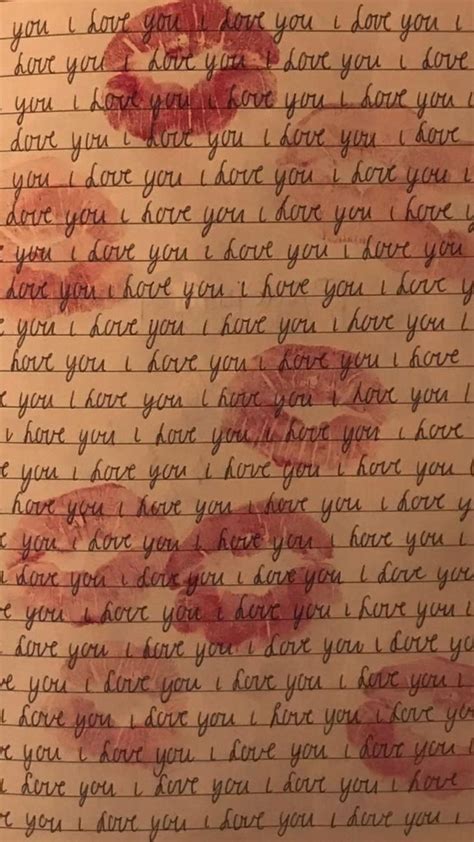 you i love you i love you i love you i
love you i love you i love you i love
you i love you i love you i love you i
love you i love you i love you i love
you i love you i love you i love you i
love you i love you i love you i love y
e you i love you i love you i love you
love you i love you i love you i love y
e you i love you i love you i love you i
love you i love you i love you i love
e you i love you i love you i love you i
i love you i love you i love you i love
e you i love you i love you i love you i
love you i love you i love you i love y
e you i love you i love you i love you i
i love you i love you i love you i love you
e you i love you i love you i love you i
love you i love you i love you i love yo
e you i love you i love you i love you i
i love you i love you i love you i love yo
e you i love you i love you i love you i
i love you i love you i love you i love
e you i love you i love you i love you i